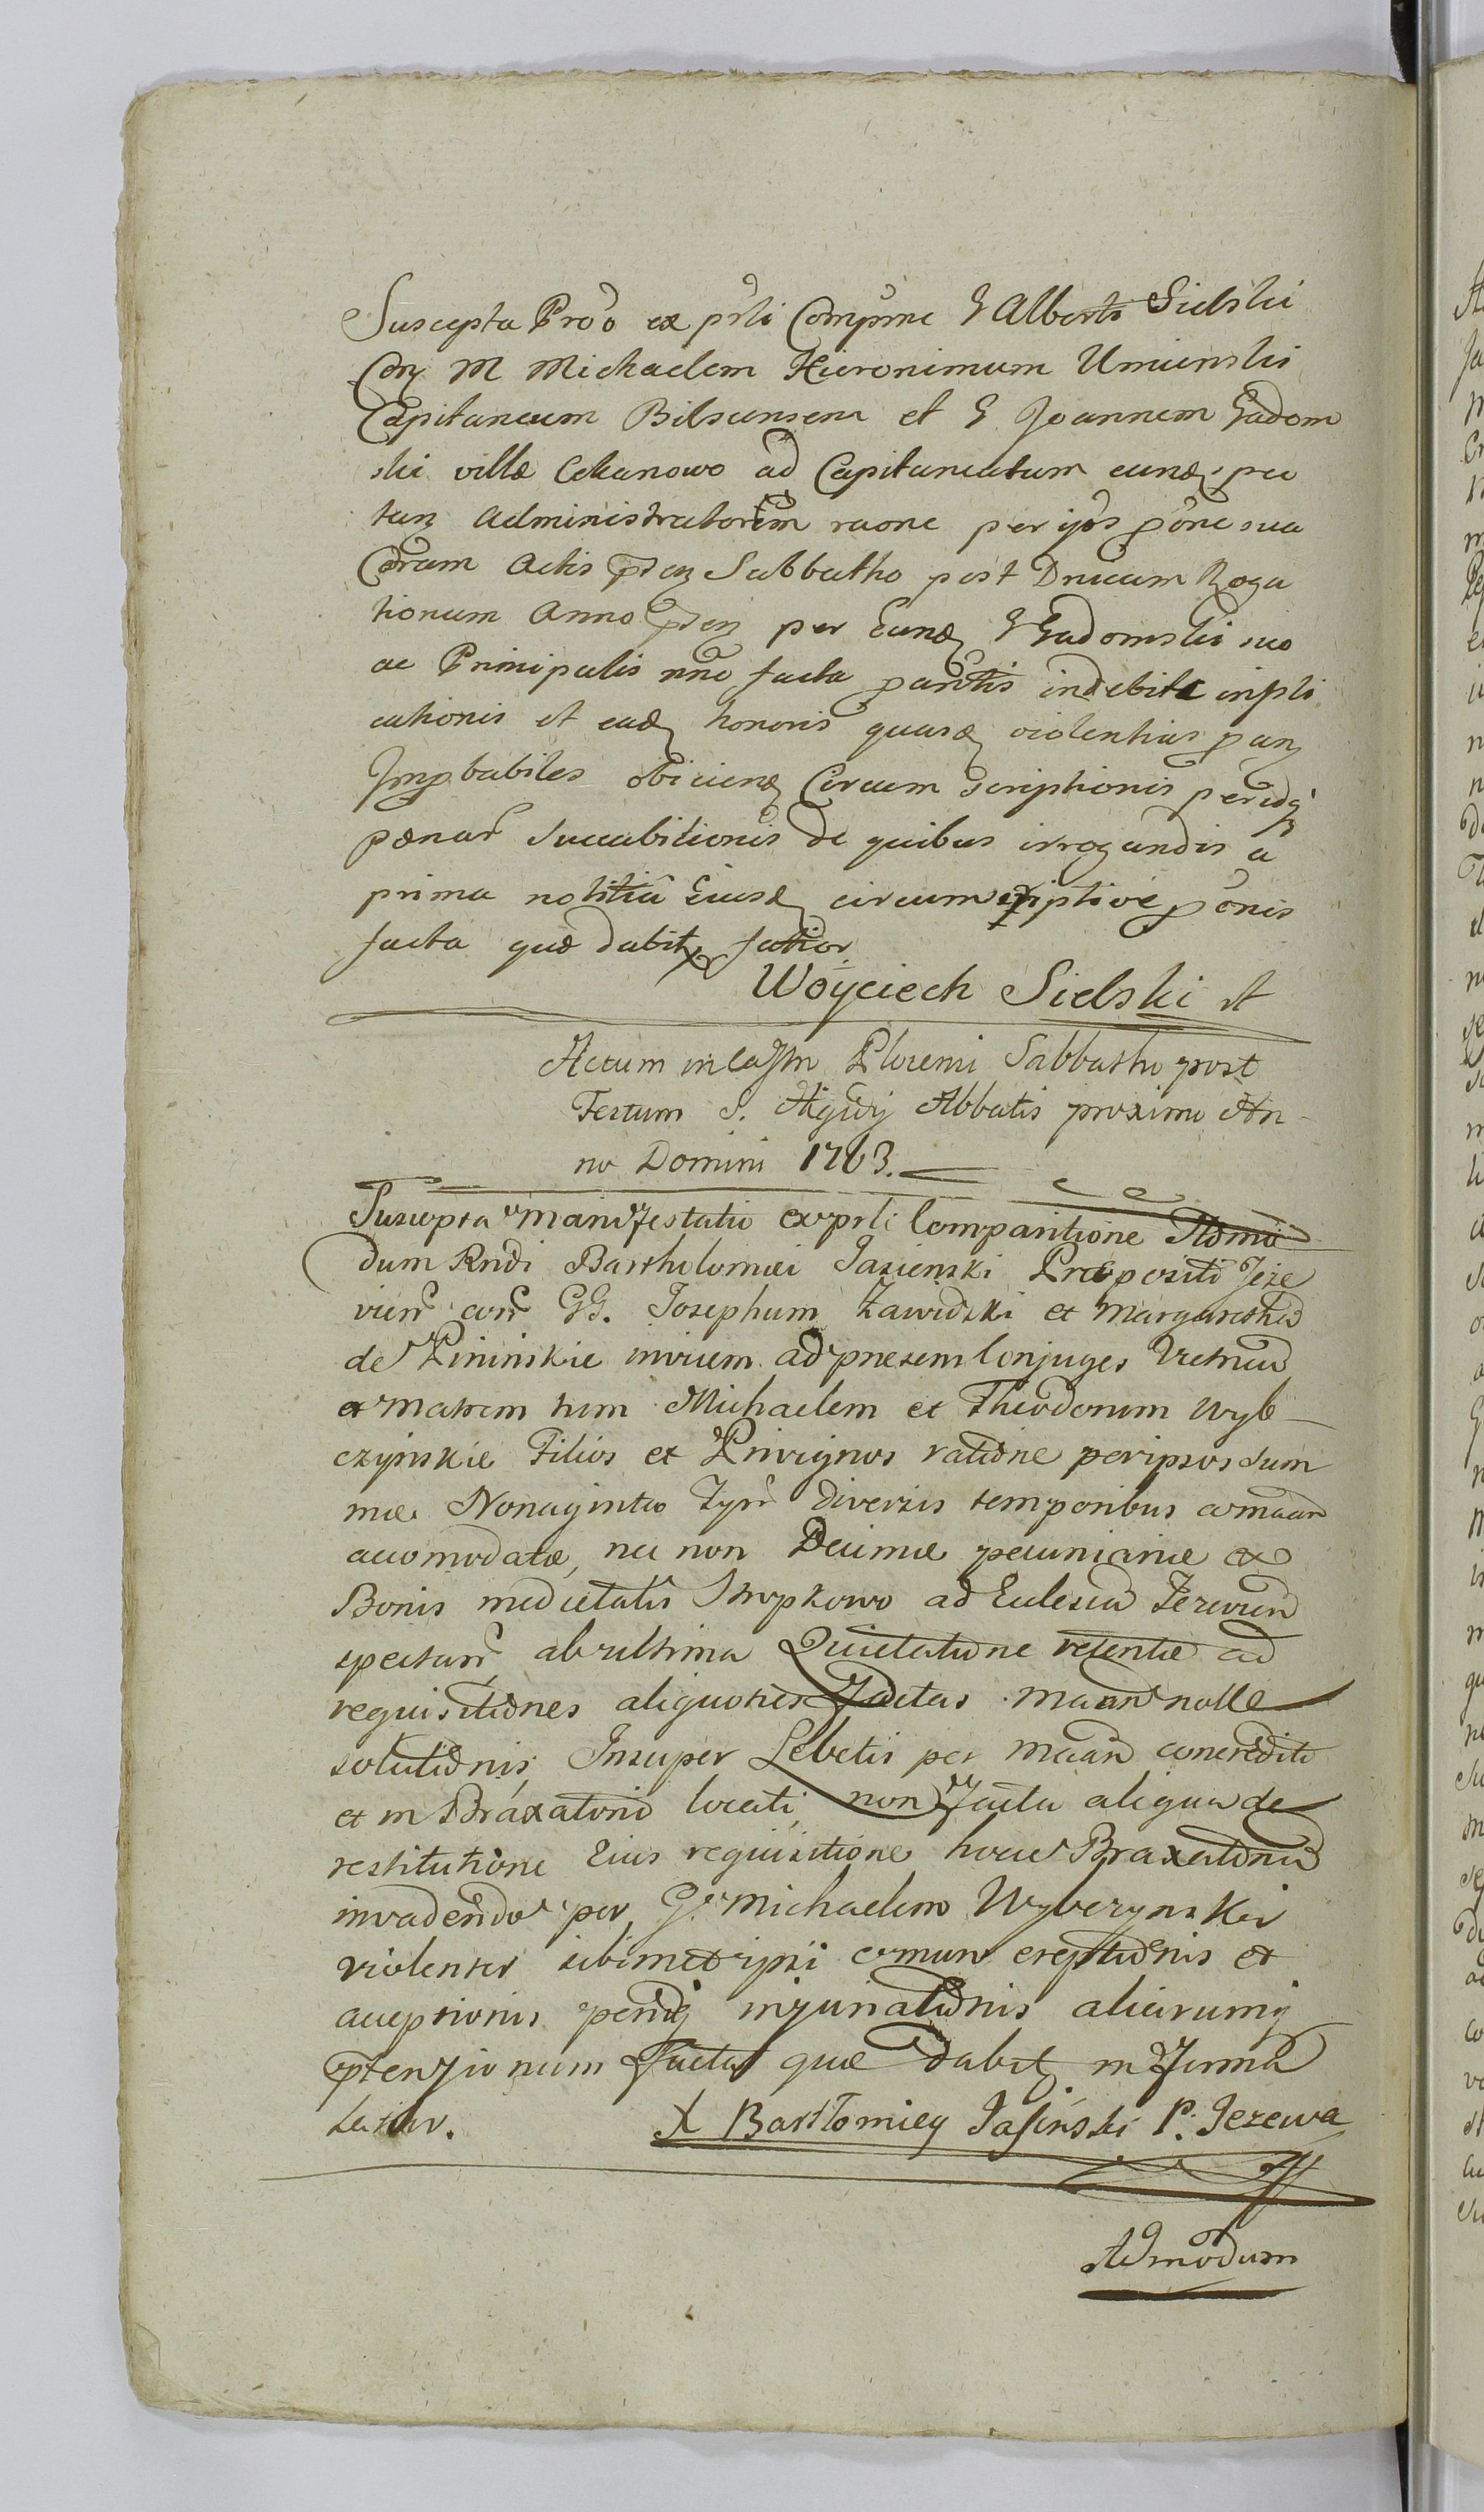 Suscepta Pro͠o ex prli Comp͠ne G Alberti Sielski
Con M Michaelem Hieronimum Umienski
Capitaneum Bilscensem et G Joannem Gadom
ski villæ Cekanowo ad Capitaneatum eund spe
tan Administratorem raone per ipos
Coram Actis Sabbatho post Dnicam Roga
tionum Anno per Eund G Gadomski suo
ac Principalis nne facta indebite impli
cationis et ead honoris quasd violentias
Improbabiles obiicien Circum scriptionis
pænar succubitionis de quibus irrogandis a
prima notitia Eiusd circumscriptive
facta quæ dabit latior
Woyciech Sielski
Actum in Castro Plocensi Sabbatho post
Festum S. Aigidij Abbatis proximo An
no Domini 1763.
Suscepta Manifestatio ex prli Comparitione Admo
dum Rndi Bartholomæi Jasienski Præpositi Jeże
vien con GG. Josephum Zawidzki et Margaretha
de Pininskie invicem ad præsens Conjuges Vitricu
et Matrem tum Michaelem et Theodorum Wyb
czynskie Filios et Privignos ratione per ipsos Sum
mæ Nonaginta Tymf diversis temporibus
accomodatæ, nec non Decimæ pecuniariæ ex
Bonis medietatis Stropkowo ad Ecclesia Jezevien
spectan ab ultima Quietatione retentæ ad
requisitiones aliquoties factas nolle
solutionis, Insuper Lebetis per concrediti
et in Braxatorio locati, non facta aliqua de
restitutione Eius requisitione hocce Braxatoriu
invadendo per G Michaelem Wybczynski
violenter sibimet ipsi ereptionis et
acceptionis injuriationis aliarumq
ptensionum Facta quæ dabit in Forma
latior. X Bartłomiey Jasinski P. Jezewa
Admodum